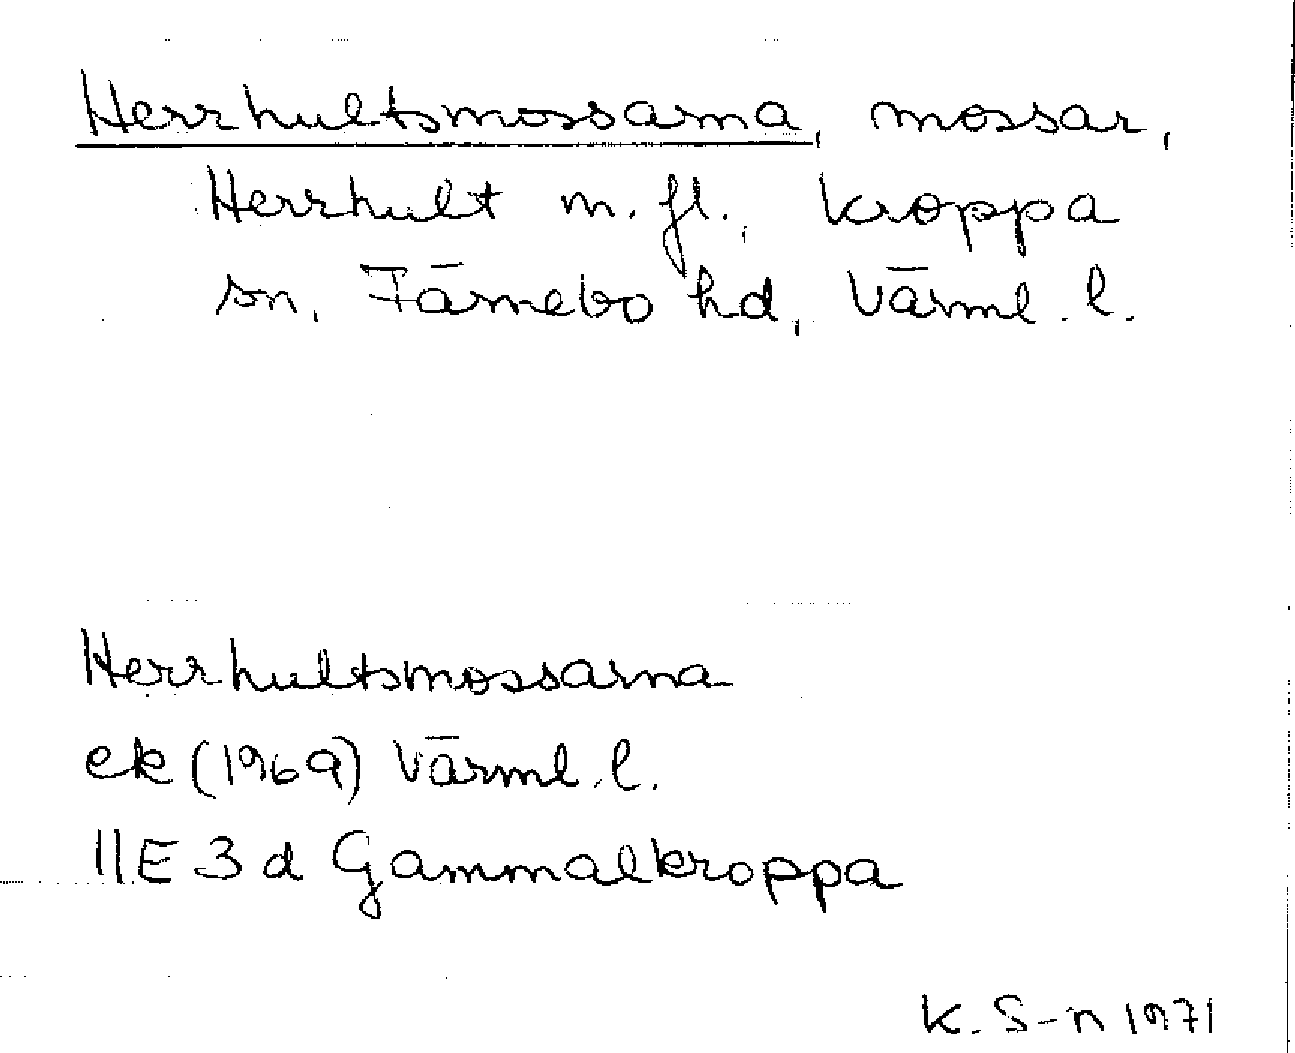 Herrhultsmossarna, mossar,
Herrhult m. fl., Kroppa
sn, Färnebo hd, Värml. l.
Herrhultsmossarna
ek (1969) Värml. l.
11E 3d Gammalkroppa
K. S-n 1971